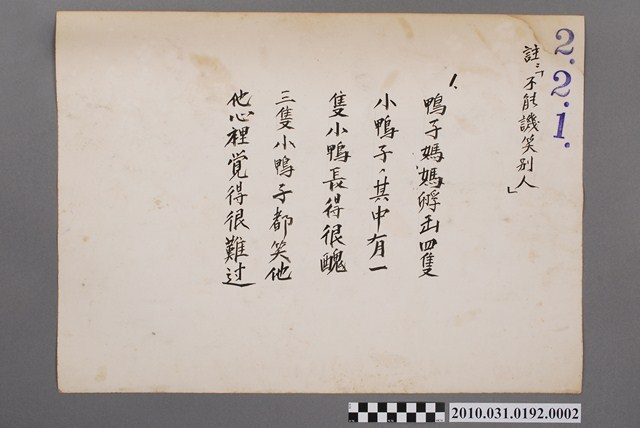 2.2.1.
註:「不能譏笑别人」
1.
鴨子媽媽孵出四隻
小鴨子，其中有一
隻小鴨長得很醜
三隻小鴨子都笑他
他心裡覚得很難过
2010.031.0192.0002